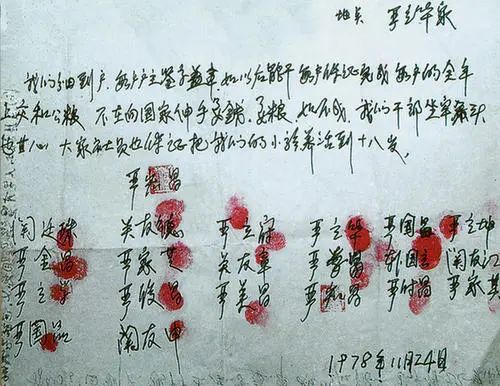 地点 严立华家
我们分田到户,每户户主签字盖章,如以后能干每户保证完成每户的全年
上交和公粮 不在向国家伸手要钱、要粮 如不成,我们干部坐牢杀头
也甘心 大家社员也保证把我们的小孩养活到十八岁.
严宏昌
関廷珠 关友德 严立富 严立华 严国昌 严立坤
严金昌 严家芝 关友章 严学昌 韩国云 関友江
严立学 严俊昌 严美昌 严宏昌 严付昌 严家其
严国品 関友申
1978年11月24日